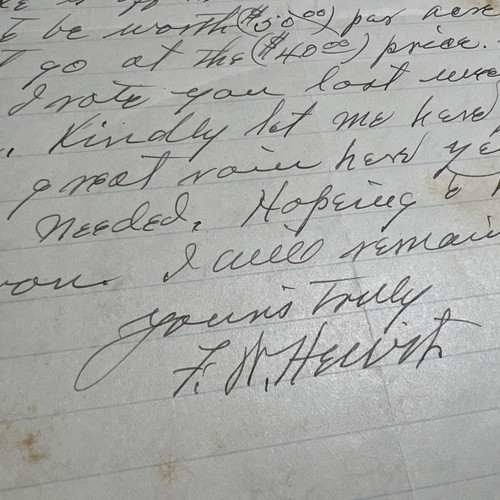 be worth ($50 00) per acre
go at the ($40 00) price.
I rote you last
. Kindly let me here
great rain here
needed. Hopeing
I will remain
yours Truly
F. W.